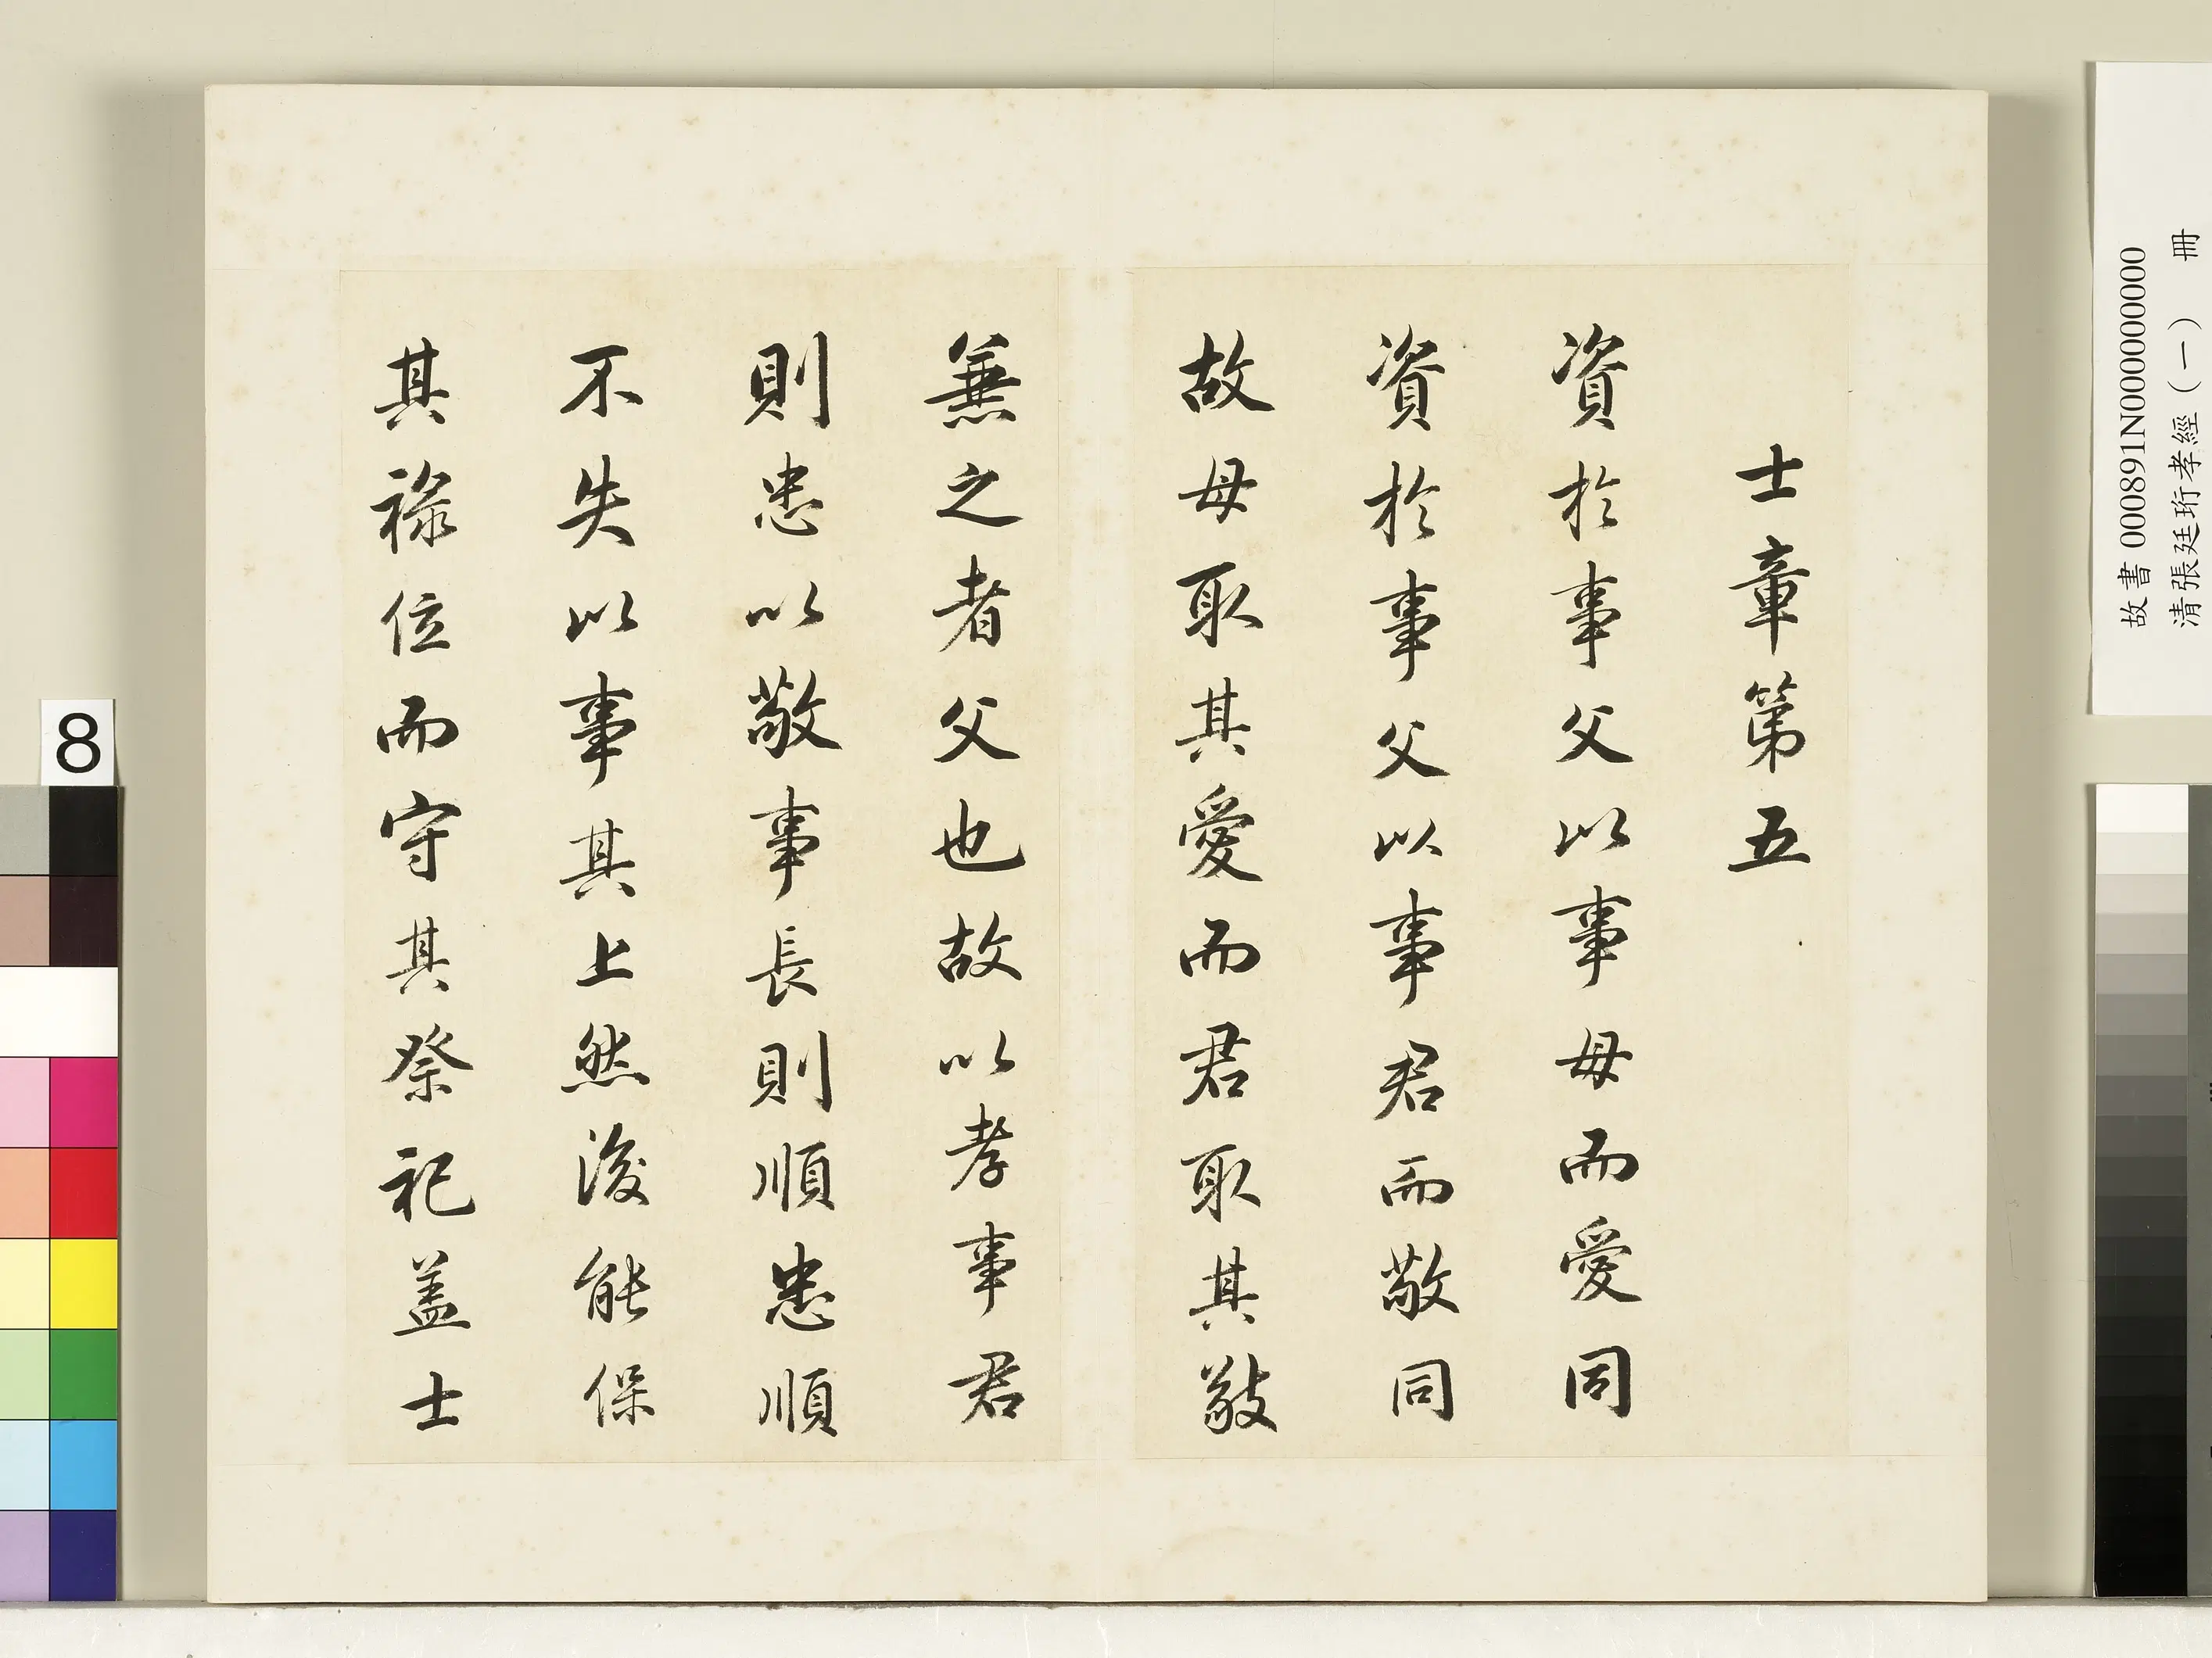 士章第五
資於事父以事母而愛同
資於事父以事君而敬同
故母取其愛而君取其敬
兼之者父也故以孝事君
則忠以敬事長則順忠順
不失以事其上然後能保
其祿位而守其祭祀盖士
故書 000891N000000000
清張廷珩孝經（一） 冊
8